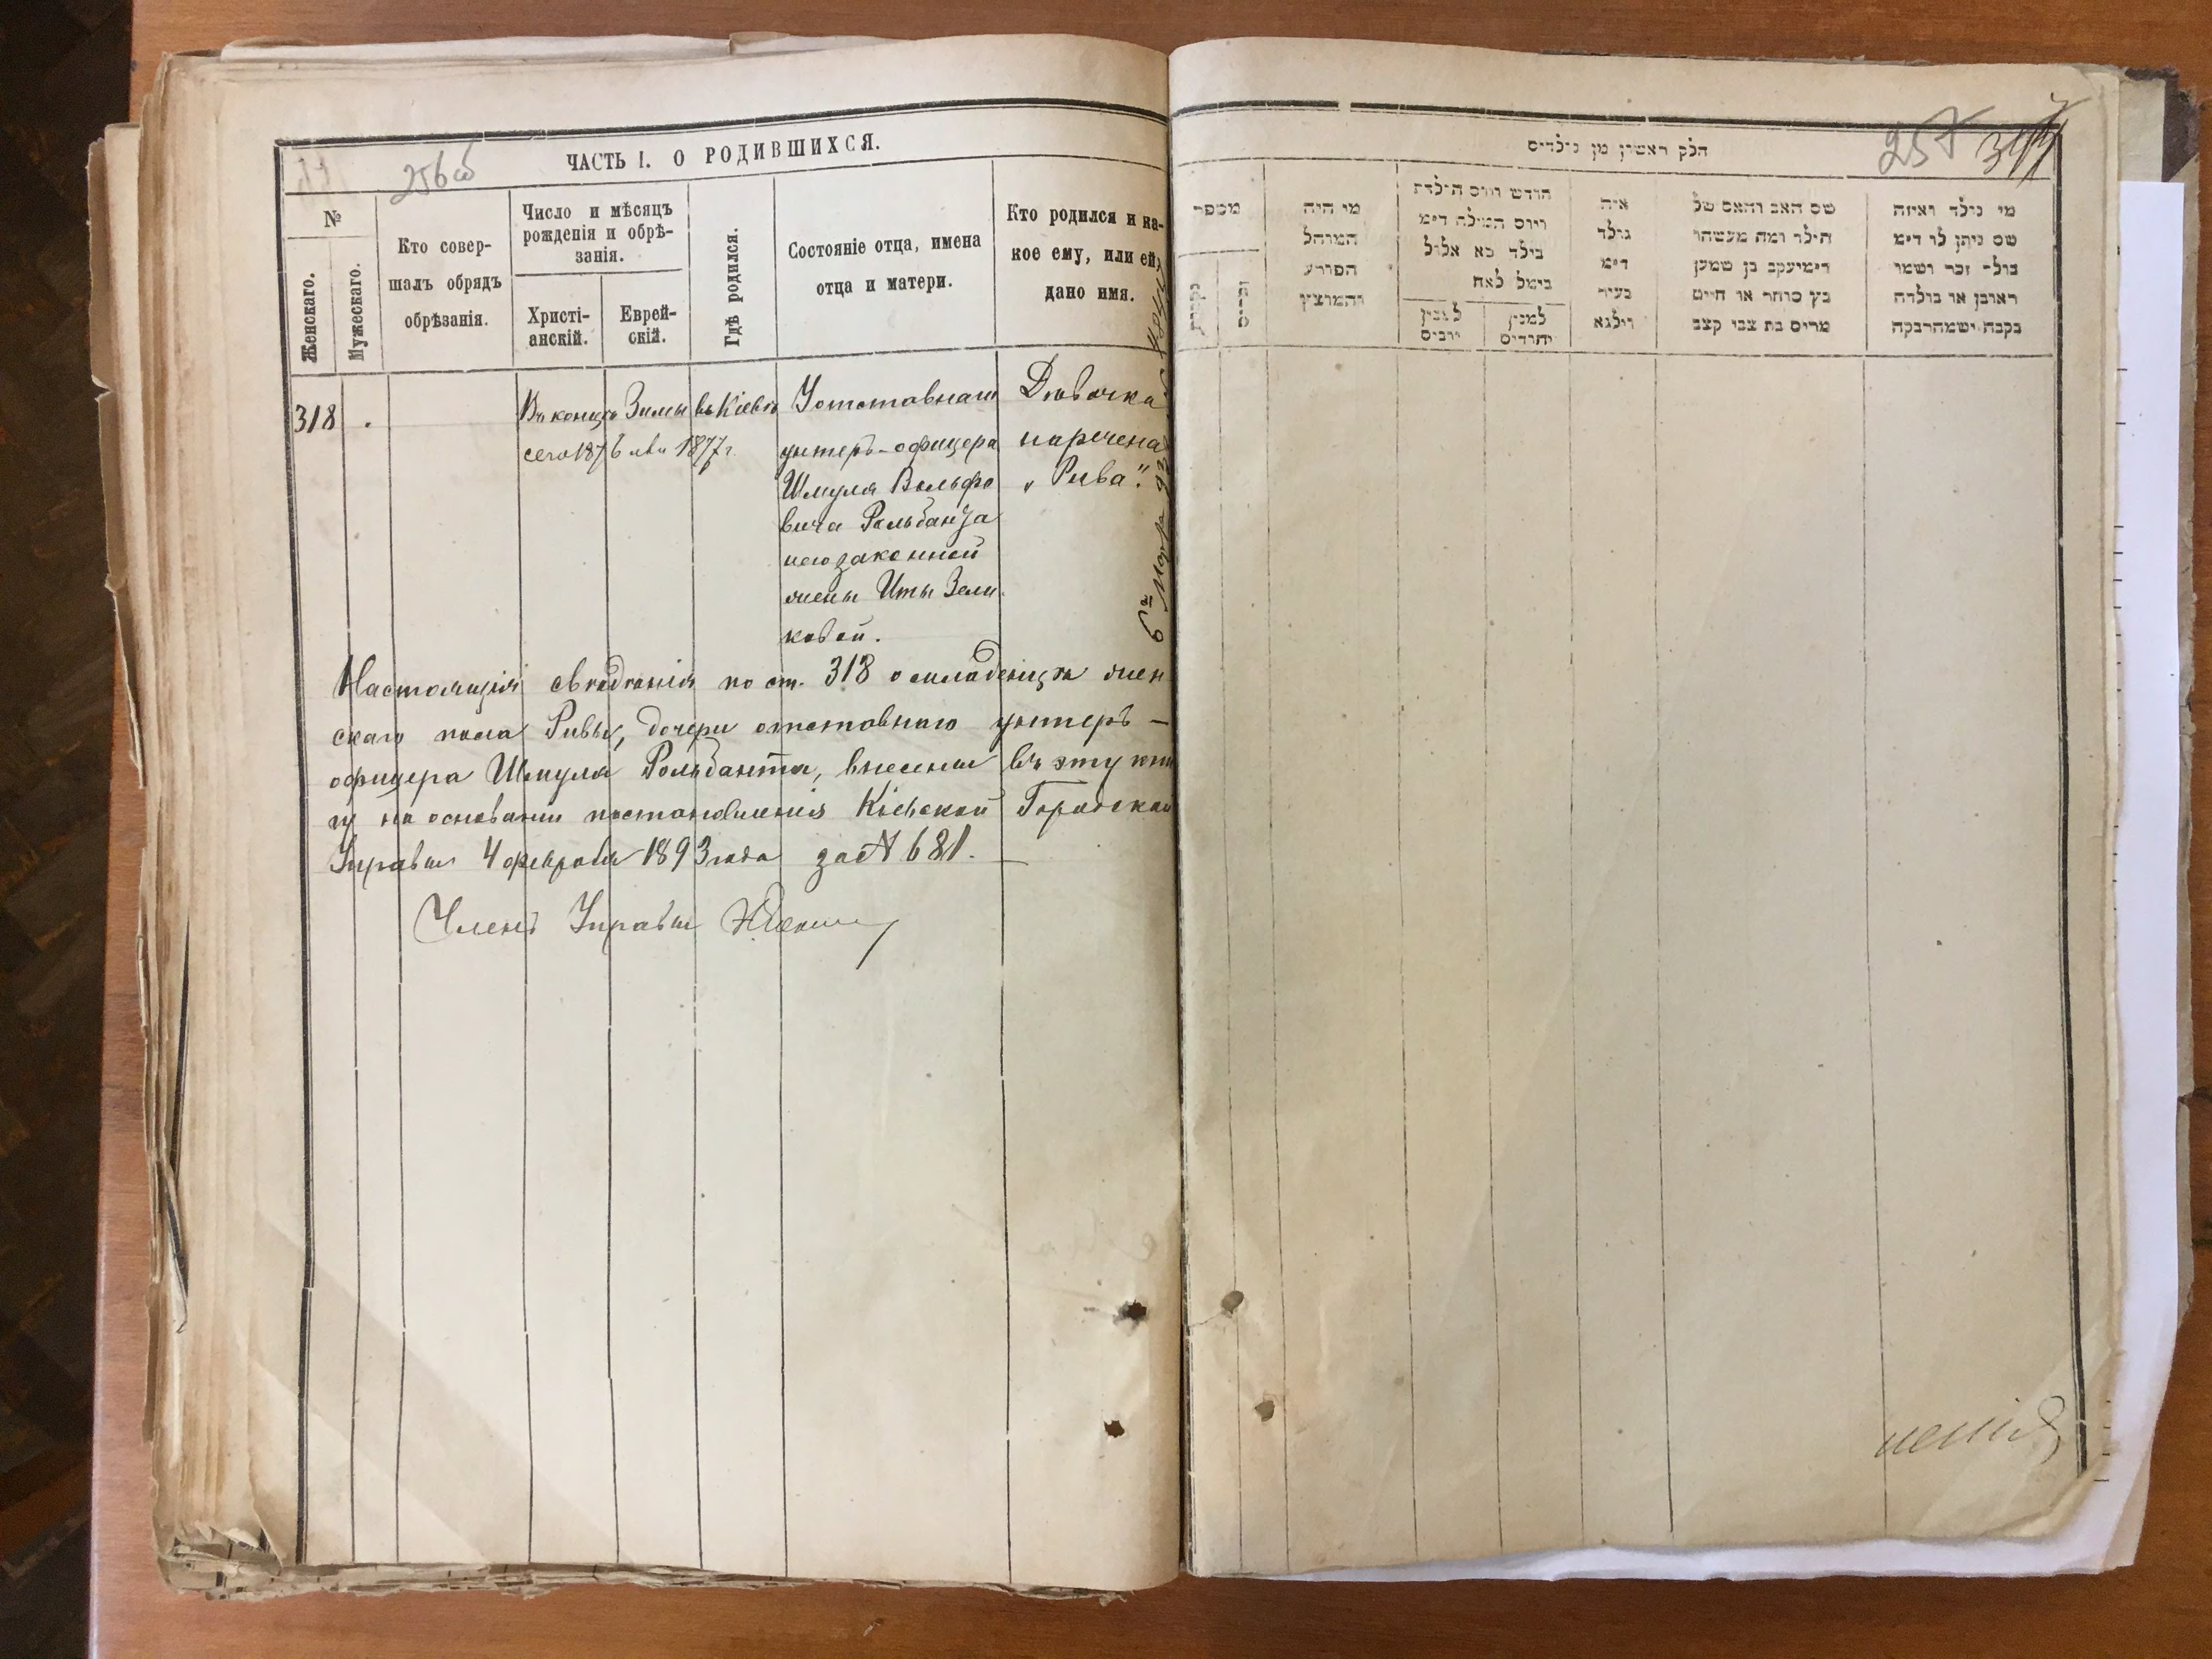 ЧАСТЬ I. О РОДИВШИХСЯ.
256 об
№
Женскаго.
Мужескаго.
Кто совер-
шалъ обрядъ
обрѣзанія.
Число и мѣсяцъ
рожденія и обрѣ-
занія.
Христі-
анскій.
Еврей-
скій.
Гдѣ родился.
Состояніе отца, имена
отца и матери.
Кто родился и ка-
кое ему, или ей,
дано имя.
318
Въ концѣ Зимы
сего 1876 или 1877 г.
въ Кіевѣ
У отставнаго
унтеръ-офицера
Шмуля Вольфо
вича Рольбанта
и его законной
жены Иты Зели
ковой.
Дѣвочка
наречена
„Рива".
6 марта 93
Настоящія свѣдѣнія по ст. 318 о младенцѣ жен
скаго пола Ривы, дочери отставнаго унтеръ-
офицера Шмуля Рольбанта, внесены въ эту кни
гу на основаніи постановленія Кіевской Городской
Управы 4 февраля 1893 года за № 681.
Членъ Управы
חלק ראשון מן נולדים
257
מספר
מי היה
המוהל
הפורע
והמוצץ
חודש ויום הולדת
ויום המילה דימ
נולד כא אלול
נימול לאח
למנין
יהודים
איה
נולד
דימ
בעיר
ווילנא
שם האב והאם של
הילד ומה מעשהו
דימ יעקב בן שמען
כץ סוחר או חייט
מרים בת צבי קצב
מי נולד ואיזה
שם ניתן לו דימ
נולד זכר ושמו
ראובן או נולדה
נקבה ושמה רבקה